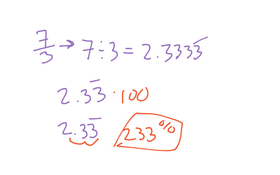 7/3 → 7÷3 = 2.3333̅
2.33̅ · 100
2.33̅ 233%